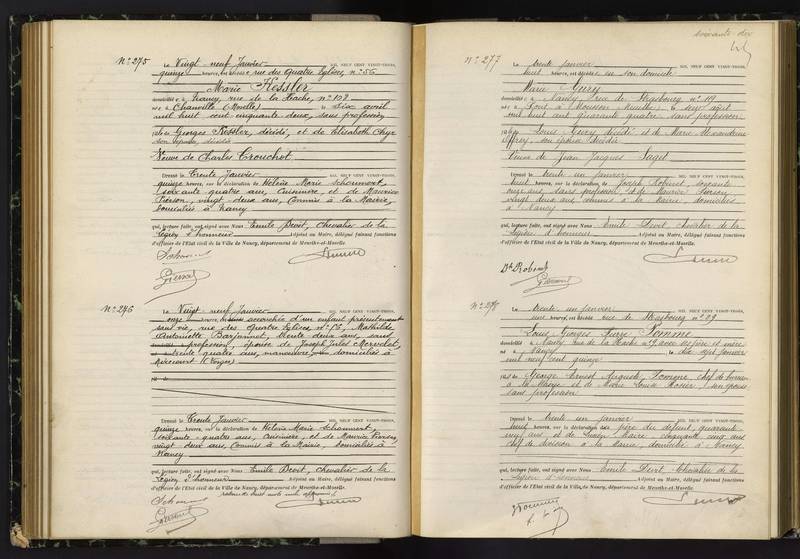 N° 275
Le Vingt-neuf Janvier MIL NEUF CENT VINGT-TROIS,
quinze heures, est décédée rue des Quatre Eglises, n° 56
Marie Kessler
domiciliée à Nancy, rue de la Hache, n° 109
née à Chanville (Moselle) le dix avril
mil huit cent cinquante deux, sans profession
fille de Georges Kessler, décédé, et de Elisabeth
son épouse, décédée
Veuve de Charles Crouchot
Dressé le Trente Janvier MIL NEUF CENT VINGT-TROIS,
quinze heures, sur la déclaration de Hélène Marie Schonment,
soixante quatre ans, Cuisinière, et de Maurice
Pierson, vingt-deux ans, Commis à la Mairie,
domiciliés à Nancy
qui, lecture faite, ont signé avec Nous Emile Devit, chevalier de la
Légion d'honneur Adjoint au Maire, délégué faisant fonctions
d'officier de l'Etat civil de la Ville de Nancy, département de Meurthe-et-Moselle.
N° 276
Le Vingt-neuf Janvier MIL NEUF CENT VINGT-TROIS,
onze heures, est accouchée d'un enfant présentement
sans vie, rue des Quatre Eglises, n° 56, Mathilde
Antoinette, trente deux ans, sans
profession, épouse de Joseph Jules
trente quatre ans, manoeuvre, domiciliés à
Mirecourt (Vosges)
Dressé le Trente Janvier MIL NEUF CENT VINGT-TROIS,
quinze heures, sur la déclaration de Hélène Marie Schonment,
soixante-quatre ans, Cuisinière, et de Maurice Pierson,
vingt deux ans, Commis à la Mairie, domiciliés à
Nancy
qui, lecture faite, ont signé avec Nous Emile Devit, chevalier de la
Légion d'honneur Adjoint au Maire, délégué faisant fonctions
d'officier de l'Etat civil de la Ville de Nancy, département de Meurthe-et-Moselle.
soixante dix
N° 277
Le trente janvier MIL NEUF CENT VINGT-TROIS,
huit heures, est décédée en son domicile
Marie
domiciliée à Nancy, rue de Strasbourg n° 119
née à Pont à Mousson Meurthe, le neuf août
mil huit cent quarante quatre sans profession
fille de Louis décédé et de Marie Alexandrine
son épouse décédée
Veuve de Jean Jacques
Dressé le trente un janvier MIL NEUF CENT VINGT-TROIS,
huit heures, sur la déclaration de Joseph Robinet, soixante
onze ans, sans profession et de Maurice Pierson
vingt deux ans, commis à la mairie, domiciliés
à Nancy
qui, lecture faite, ont signé avec Nous Emile Devit, chevalier de la
Légion d'honneur Adjoint au Maire, délégué faisant fonctions
d'officier de l'Etat civil de la Ville de Nancy, département de Meurthe-et-Moselle.
N° 278
Le trente un janvier MIL NEUF CENT VINGT-TROIS,
une heure, est décédé rue de Strasbourg n° 29
Louis Georges Pierre Pomme
domicilié à Nancy rue de la Hache n° 9, avec ses père et mère
né à Nancy le dix sept janvier
mil neuf cent quinze
fils de George Ernest Auguste Pomme, chef de bureau
à la Mairie et de Marie Louise, son épouse
sans profession
Dressé le trente un janvier MIL NEUF CENT VINGT-TROIS,
huit heures, sur la déclaration du père du défunt, quarante
neuf ans, et de Maire, cinquante cinq ans
chef de division à la mairie, domiciliés à Nancy
qui, lecture faite, ont signé avec Nous Emile Devit Chevalier de la
Légion d'honneur Adjoint au Maire, délégué faisant fonctions
d'officier de l'Etat civil de la Ville de Nancy, département de Meurthe-et-Moselle.